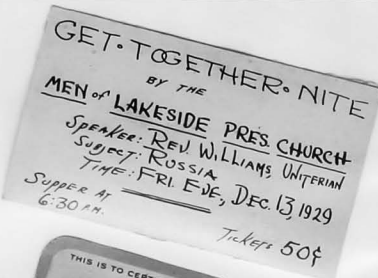 GET·TOGETHER·NITE
BY THE
MEN of LAKESIDE PRES. CHURCH
SPEAKER: REV. WILLIAMS, UNITERIAN
SUBJECT: RUSSIA
TIME: FRI. EVE, DEC. 13, 1929
SUPPER AT
6:30 P.M.
TICKETS 50¢
THIS IS TO CERT